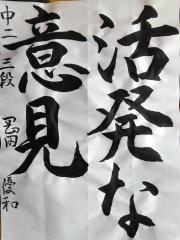 活発な
意見
中二 三段 岡 優和